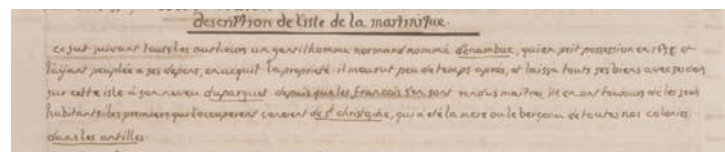 description de l'isle de la martinique.
ce fut suivant touts les autheurs un gentilhomme normand nommé denambuc, qui en prit possession en 1635 et
l'aÿant peuplée a ses depens, en acquit la propriété. il mourut peu de temps après, et laissa touts ses biens avec ses
sur cette isle à son neveu duparquet depuis que les françois s'en sont rendus maitres, ils en ont toujours été les seuls
habitants: les premiers qui l'occuperent vinrent de st christophe, qui a été la mere ou le berceau de toutes nos colonies
dans les antilles.